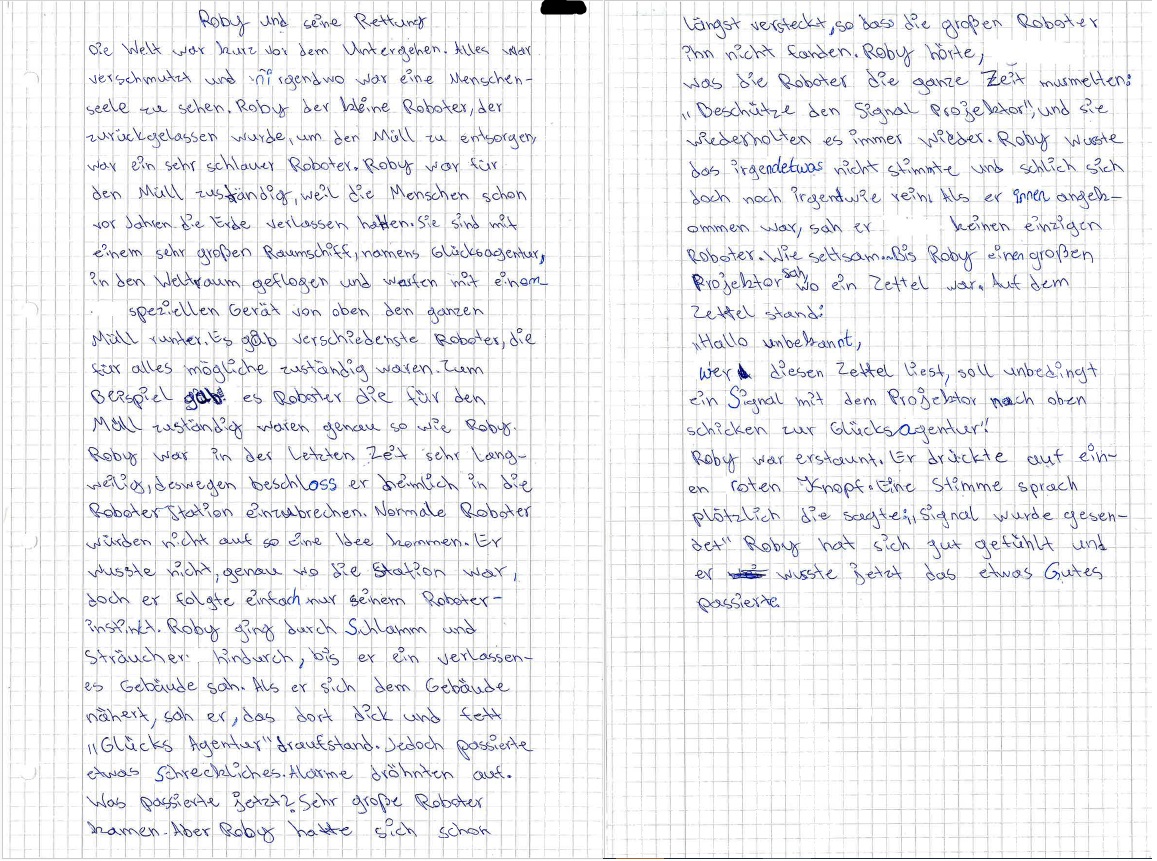 Roby und seine Rettung
Die Welt war kurz vor dem Untergehen. Alles war
verschmutzt und nirgendwo war eine Menschen-
seele zu sehen. Roby der kleine Roboter, der
zurückgelassen wurde, um den Müll zu entsorgen,
war ein sehr schlauer Roboter. Roby war für
den Müll zuständig, weil die Menschen schon
vor Jahren die Erde verlassen hatten. Sie sind mit
einem sehr großen Raumschiff, namens Glücksagentur,
in den Weltraum geflogen und warfen mit einem
speziellen Gerät von oben den ganzen
Müll runter. Es gab verschiedenste Roboter, die
für alles mögliche zuständig waren. Zum
Beispiel gab es Roboter die für den
Müll zuständig waren genau so wie Roby.
Roby war in der letzten Zeit sehr lang-
weilig, deswegen beschloss er heimlich in die
Roboter Station einzubrechen. Normale Roboter
würden nicht auf so eine Idee kommen. Er
wusste nicht, genau wo die Station war,
doch er folgte einfach nur seinem Roboter-
instinkt. Roby ging durch Schlamm und
Sträucher hindurch, bis er ein verlassen-
es Gebäude sah. Als er sich dem Gebäude
nähert, sah er, das dort dick und fett
„Glücks Agentur" draufstand. Jedoch passierte
etwas schreckliches. Alarme dröhnten auf.
Was passierte jetzt? Sehr große Roboter
kamen. Aber Roby hatte sich schon
längst versteckt, so dass die großen Roboter
ihn nicht fanden. Roby hörte,
was die Roboter die ganze Zeit murmelten:
„Beschütze den Signal Projektor!", und sie
wiederholten es immer wieder. Roby wusste
das irgendetwas nicht stimmte und schlich sich
doch noch irgendwie rein. Als er innen angek-
ommen war, sah er keinen einzigen
Roboter. Wie seltsam... Bis Roby einen großen
Projektor sah wo ein Zettel war. Auf dem
Zettel stand:
„Hallo unbekannt,
wer diesen Zettel liest, soll unbedingt
ein Signal mit dem Projektor nach oben
schicken zur Glücksagentur!"
Roby war erstaunt. Er drückte auf ein-
en roten Knopf. Eine Stimme sprach
plötzlich die sagte: „Signal wurde gesen-
det" Roby hat sich gut gefühlt und
er wusste jetzt das etwas Gutes
passierte.